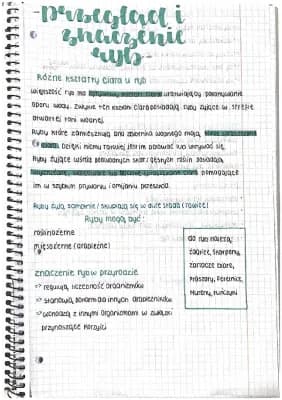 -przegląd i
znaczenie
ryb-
różne kształty ciała u ryb
większość ryb ma opływowy kształt ciała ułatwiający pokonywanie
oporu wody. Zwykle ten kształt ciała posiadają ryby żyjące w strefie
otwartej toni wodnej.
Ryby które zamieszkują dna zbiornika wodnego mają
ciała. Dzięki niemu łatwiej jest im polować lub ukrywać się.
Ryby żyjące wśród podwodnych skał i gęstych roślin posiadają
ciała pomagające
im w szybkim pływaniu i omijaniu przeszkód.
Ryby żyją samotnie i skupiają się w duże stada (ławice)
Ryby mogą być:
roślinożerne
mięsożerne (drapieżne)
do ryb należą:
żaglice, skorpeny,
Mureny, tuńczyki
znaczenie ryb w przyrodzie
→ regulują liczebność organizmów
→ stanowią pokarm dla innych drapieżników
→ wchodzą z innymi organizmami w związki
przynoszące korzyści